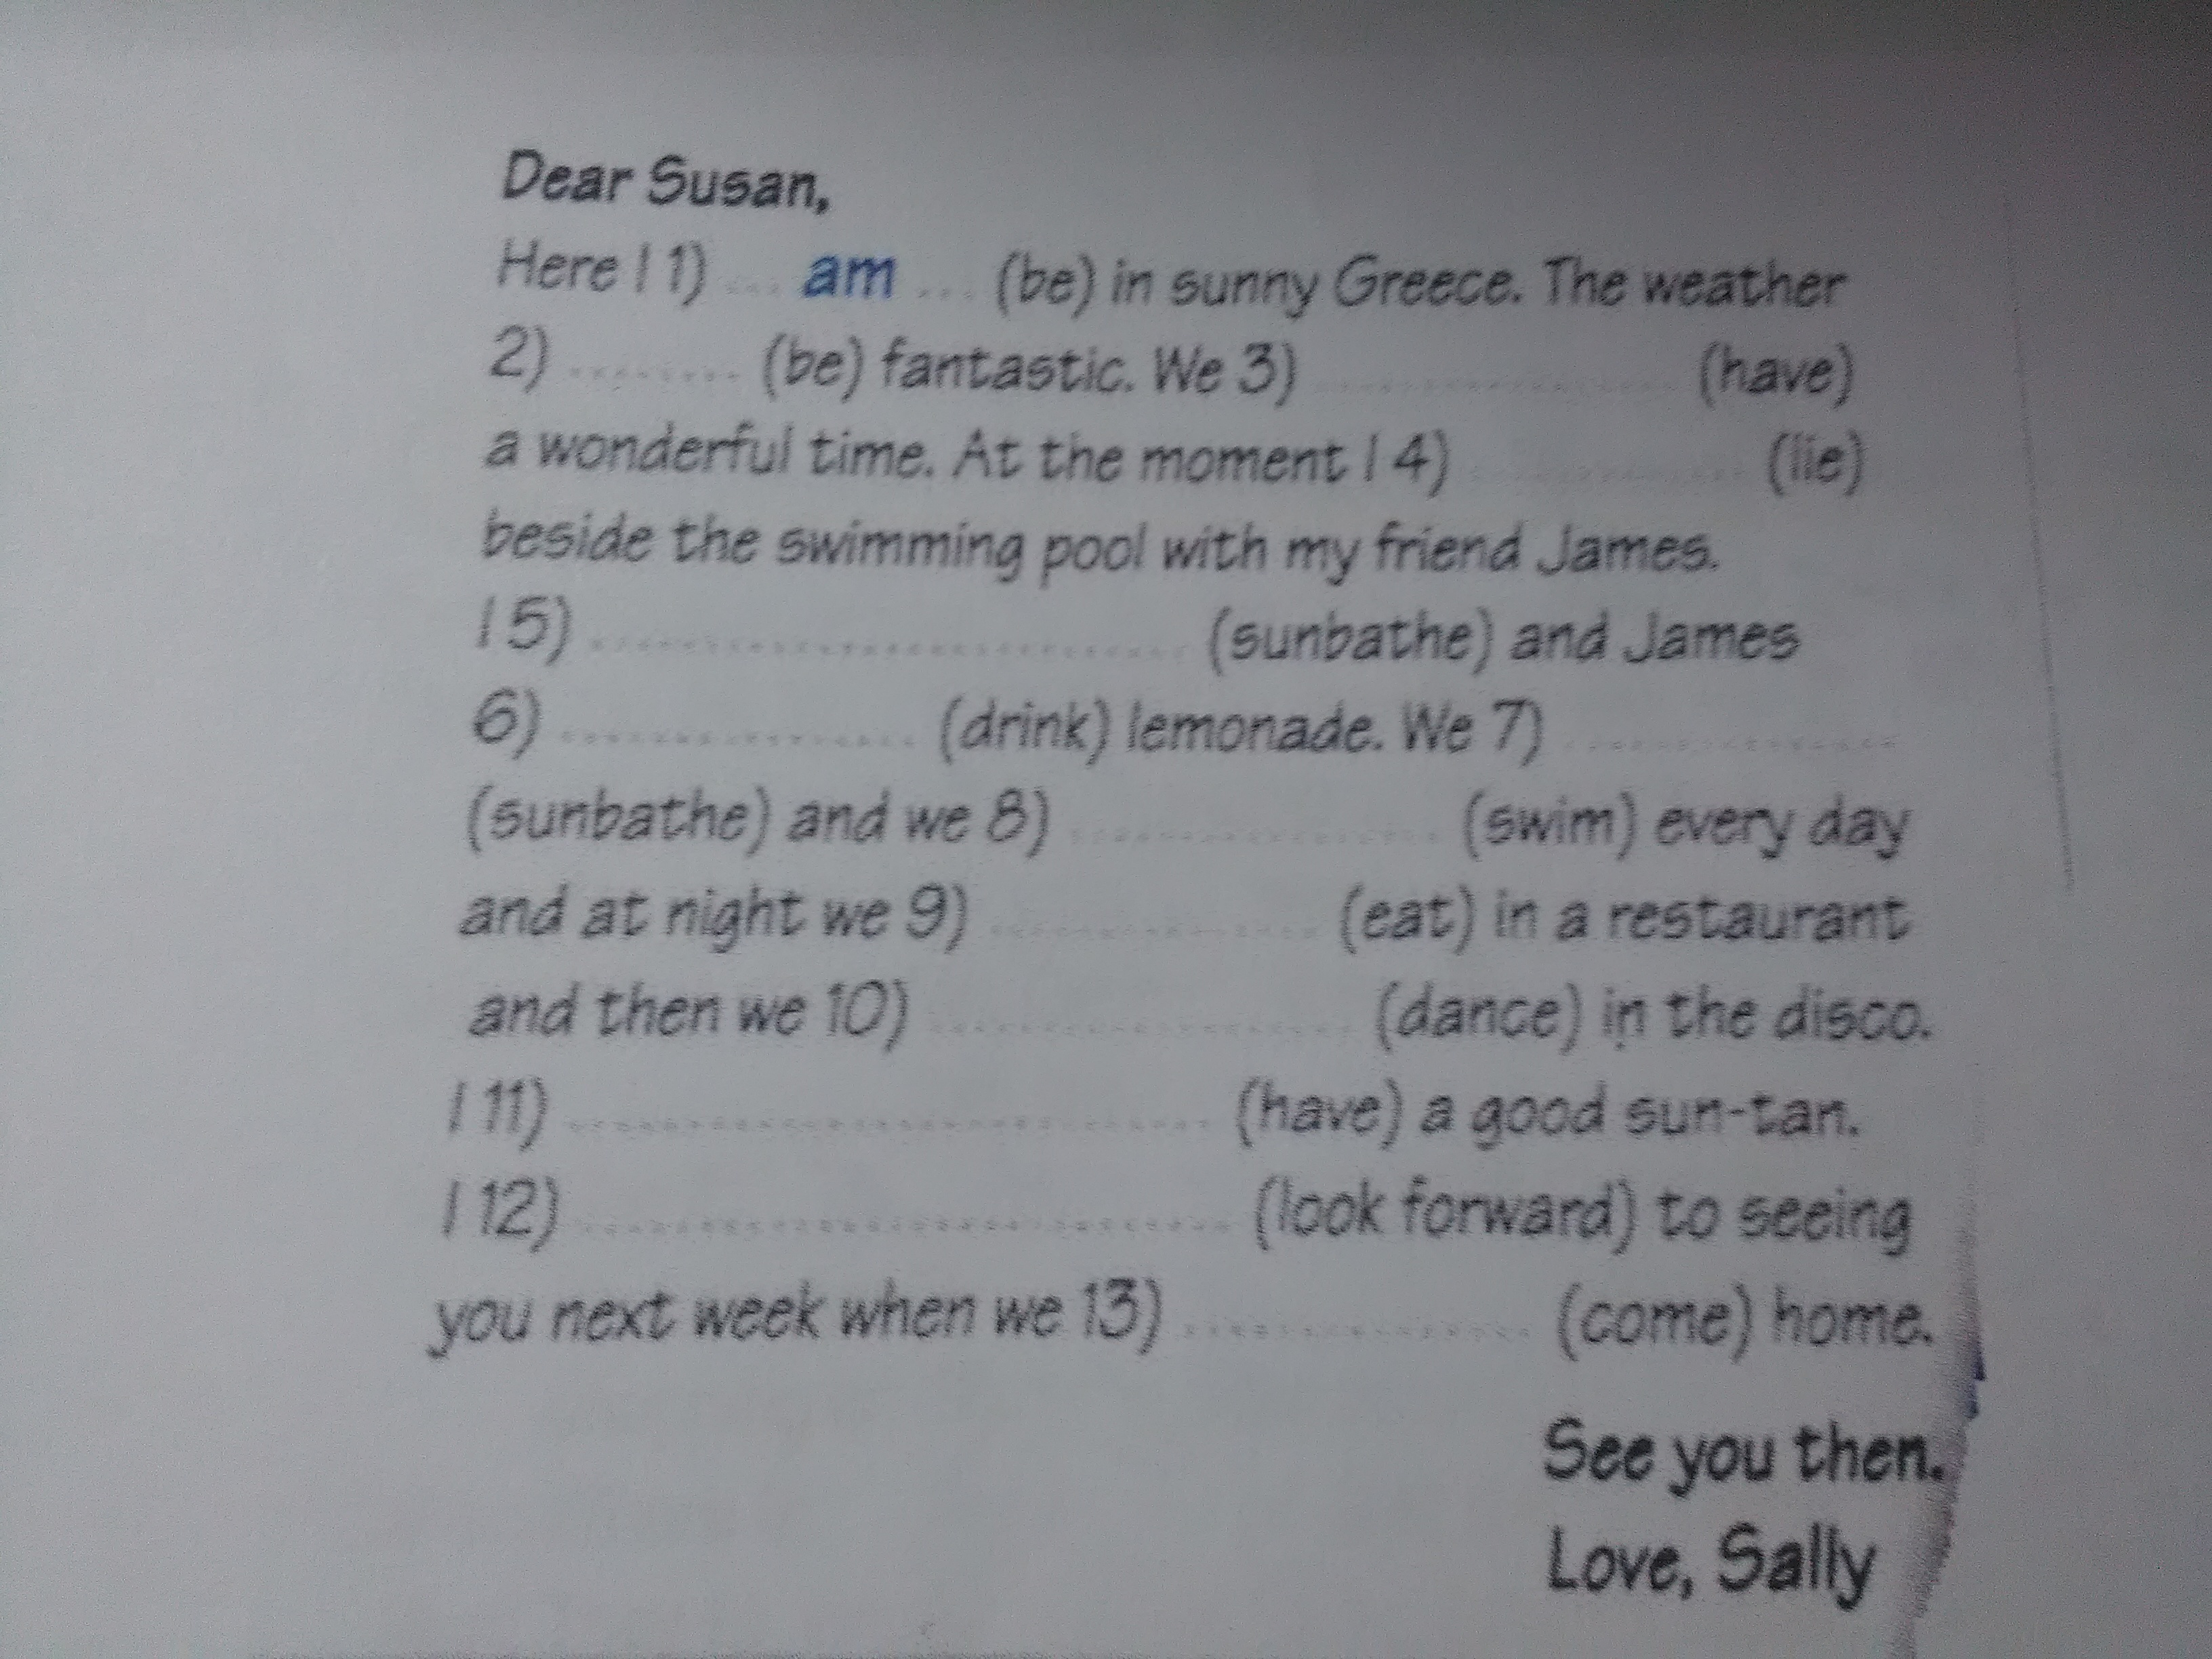 Dear Susan,
Here I 1) ... am ... (be) in sunny Greece. The weather
2) ......... (be) fantastic. We 3) .................... (have)
a wonderful time. At the moment I 4) ................ (lie)
beside the swimming pool with my friend James.
I 5) ................................ (sunbathe) and James
6) .................... (drink) lemonade. We 7) ..................
(sunbathe) and we 8) .................... (swim) every day
and at night we 9) .................... (eat) in a restaurant
and then we 10) ........................ (dance) in the disco.
I 11) .................................... (have) a good sun-tan.
I 12) .................................... (look forward) to seeing
you next week when we 13) .................... (come) home.
See you then.
Love, Sally